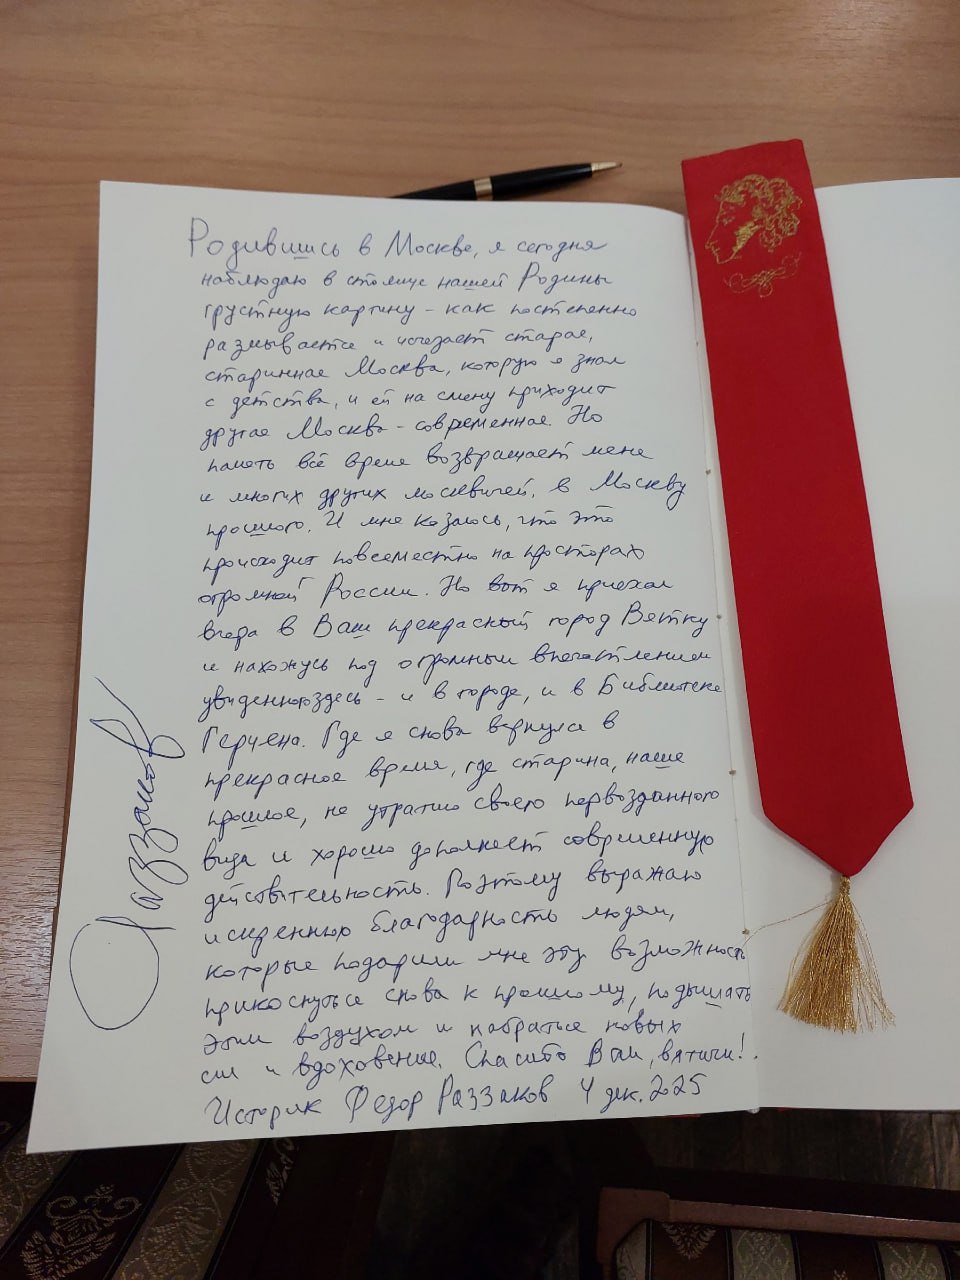 Родившись в Москве, я сегодня
наблюдаю в столице нашей Родины
грустную картину - как постепенно
размывается и исчезает старая,
старинная Москва, которую я знал
с детства, и ей на смену приходит
другая Москва - современная. Но
память всё время возвращает меня
и многих других москвичей, в Москву
прошлого. И мне казалось, что это
происходит повсеместно на просторах
огромной России. Но вот я приехал
вчера в Ваш прекрасный город Вятку
и нахожусь под огромным впечатлением
увиденного здесь - и в городе, и в Библиотеке
Герцена. Где я снова вернулся в
прекрасное время, где старина, наше
прошлое, не утратило своего первозданного
вида и хорошо дополняет современную
действительность. Поэтому выражаю
искреннюю благодарность людям,
которые подарили мне эту возможность
прикоснуться снова к прошлому, подышать
этим воздухом и набраться новых
сил и вдохновения. Спасибо Вам, вятичи!
Историк Федор Раззаков 4 дек. 2025
Раззаков